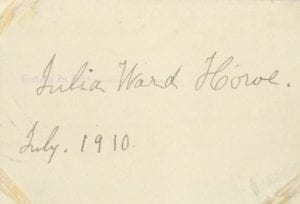 Julia Ward Howe.
July. 1910.